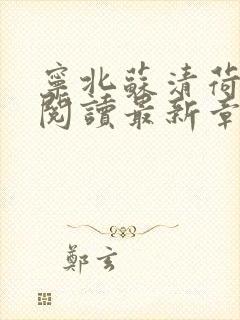 寧北蘇清荷
閱讀最新章
鄭玄